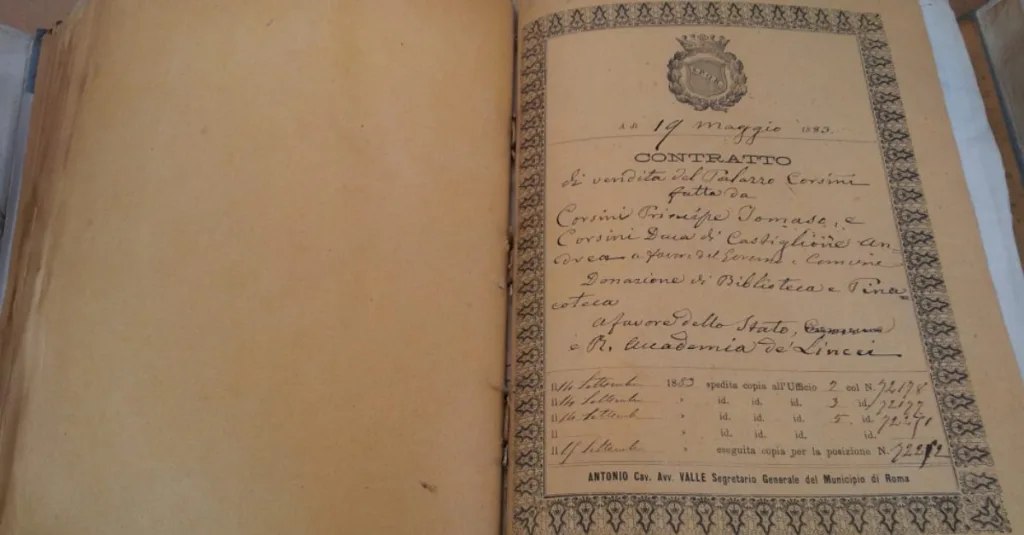 A dì 19 maggio 1883.
CONTRATTO
di vendita del Palazzo Corsini
fatta da
Corsini Principe Tomaso, e
Corsini Duca di Castiglione An-
drea a favore del Governo e Comune
Donazione di Biblioteca e Pina
coteca
a favore dello Stato, Comune
e R. Accademia de' Lincei
Il 14 Settembre 1883 spedita copia all'Ufficio 2 col N. 72178
Il 14 Settembre " id. id. id. 3 id. 72177
Il 14 Settemb " id. id. id. 5 id.
Il " id. id. id. id.
Il Settembre " eseguita copia per la posizione N.
ANTONIO Cav. Avv. VALLE Segretario Generale del Municipio di Roma